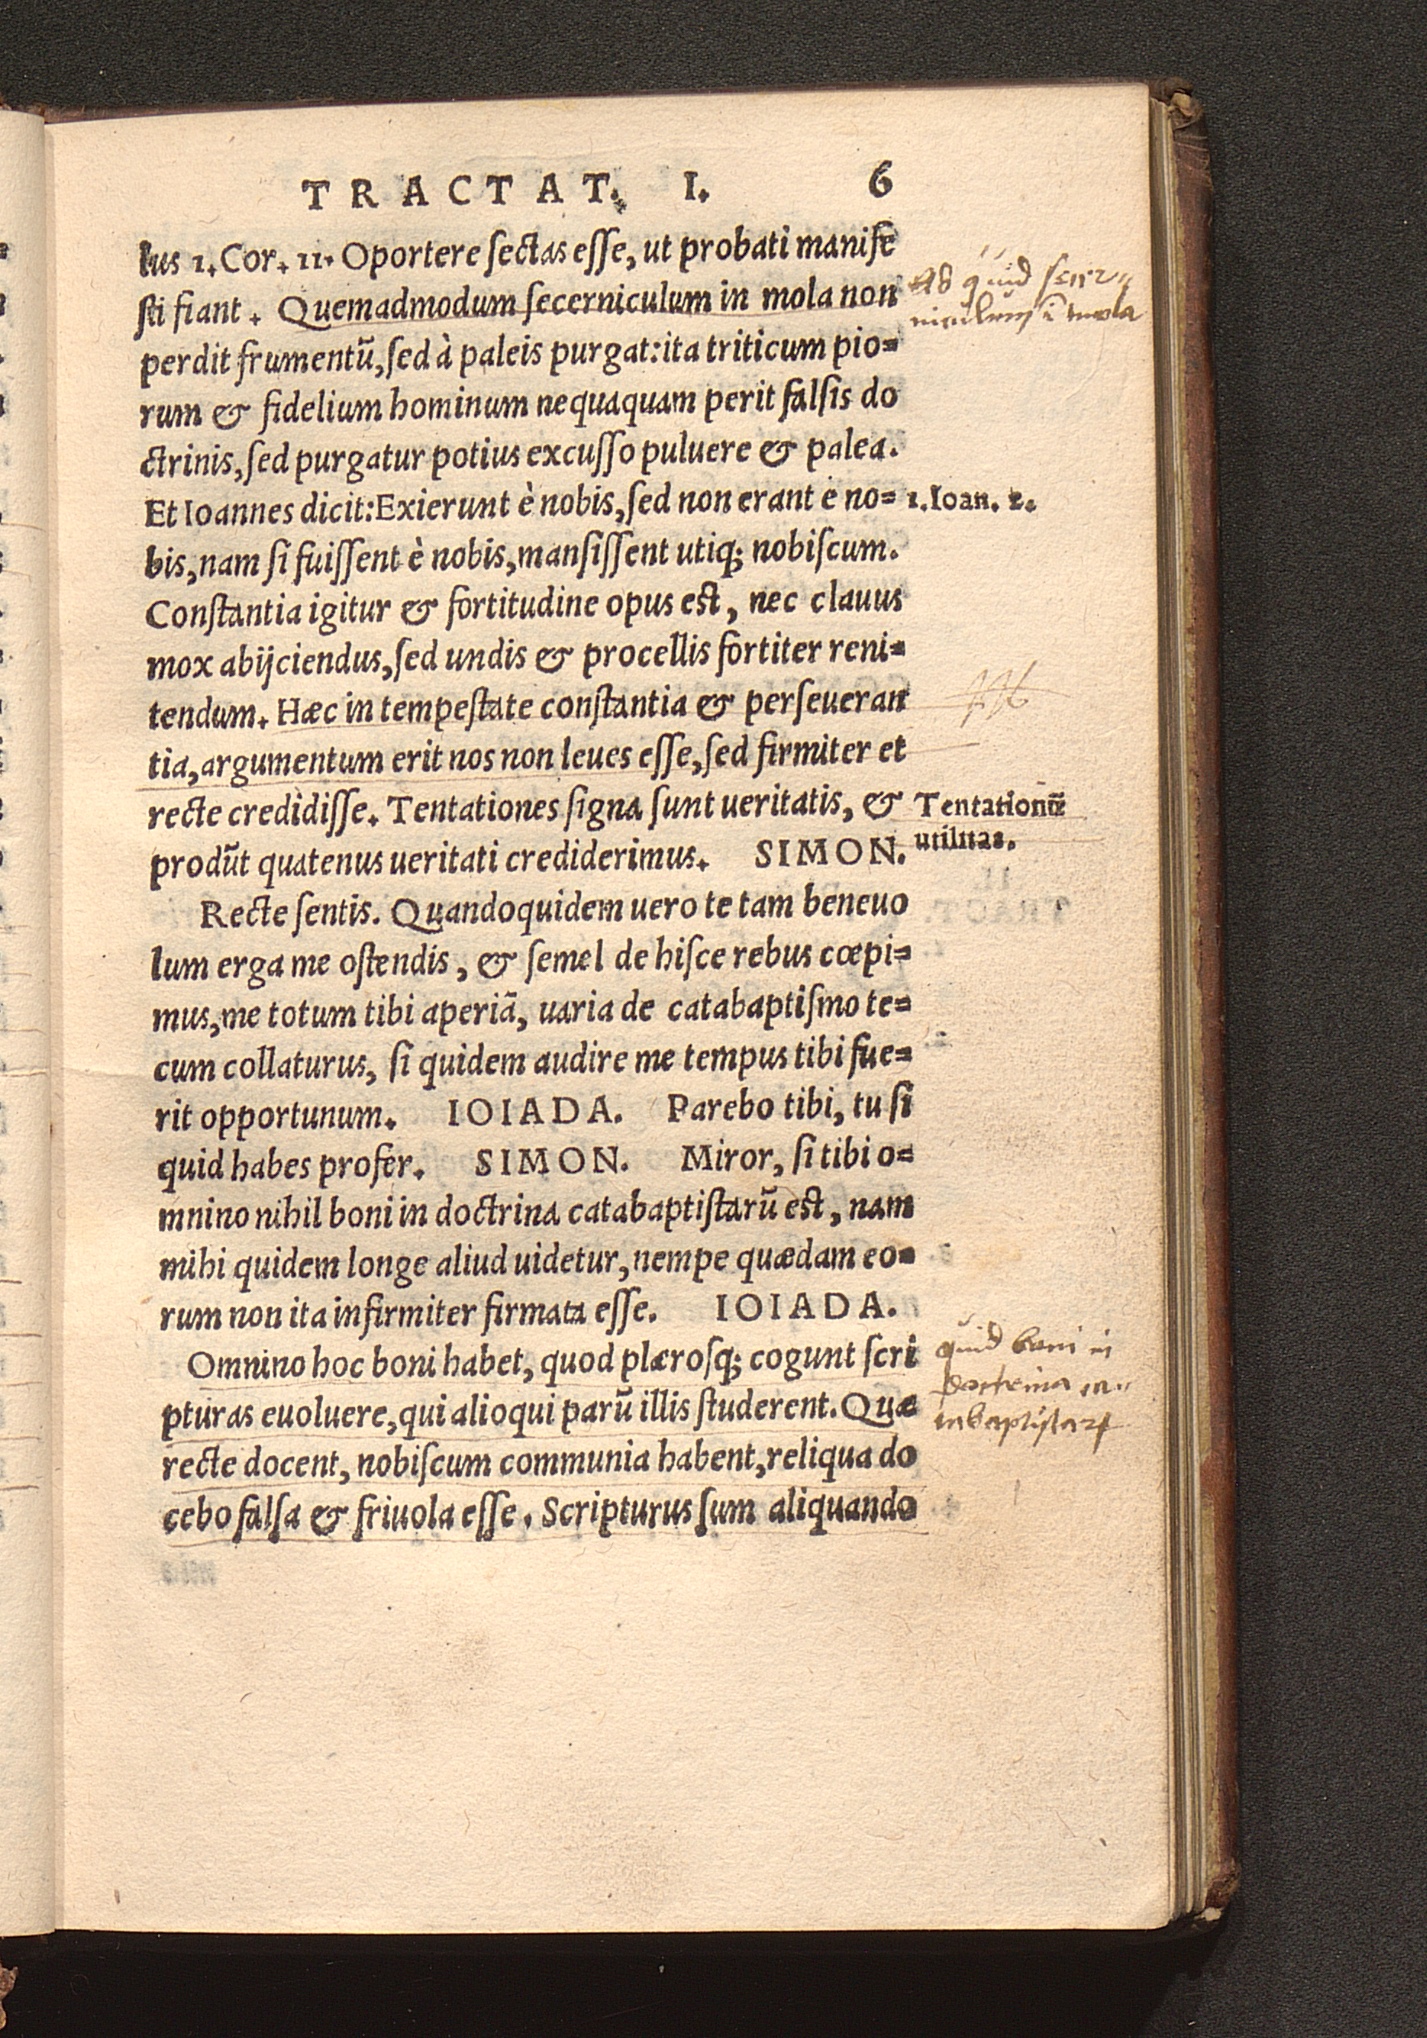 TRACTAT. I. 6
lus 1. Cor. 11. Oportere ſectas eſſe, ut probati manife
ſti fiant. Quemadmodum ſecerniculum in mola non
Ad quid ſecer-
niculum ī mola
perdit frumentū, ſed à paleis purgat: ita triticum pio=
rum & fidelium hominum nequaquam perit falſis do
ctrinis, ſed purgatur potius excuſſo puluere & palea.
Et Ioannes dicit: Exierunt è nobis, ſed non erant e no=
1. Ioan. 2.
bis, nam ſi fuiſſent è nobis, manſiſſent utiq; nobiſcum.
Conſtantia igitur & fortitudine opus eſt, nec clauus
mox abijciendus, ſed undis & procellis fortiter reni=
tendum. Hæc in tempeſtate conſtantia & perſeueran
tia, argumentum erit nos non leues eſſe, ſed firmiter et
recte credidiſſe. Tentationes ſigna ſunt ueritatis, &
Tentationū
utilitas.
prodūt quatenus ueritati crediderimus. SIMON.
Recte ſentis. Quandoquidem uero te tam beneuo
lum erga me oſtendis, & ſemel de hiſce rebus cœpi=
mus, me totum tibi aperiā, uaria de catabaptiſmo te=
cum collaturus, ſi quidem audire me tempus tibi fue=
rit opportunum. IOIADA. Parebo tibi, tu ſi
quid habes profer. SIMON. Miror, ſi tibi o=
mnino nihil boni in doctrina catabaptiſtarū eſt, nam
mihi quidem longe aliud uidetur, nempe quædam eo=
rum non ita infirmiter firmata eſſe. IOIADA.
Omnino hoc boni habet, quod plæroſq; cogunt ſcri
quid boni in
doctrina ca-
tabaptiſtarꝝ
pturas euoluere, qui alioqui parū illis ſtuderent. Quæ
recte docent, nobiſcum communia habent, reliqua do
cebo falſa & friuola eſſe. Scripturus ſum aliquando